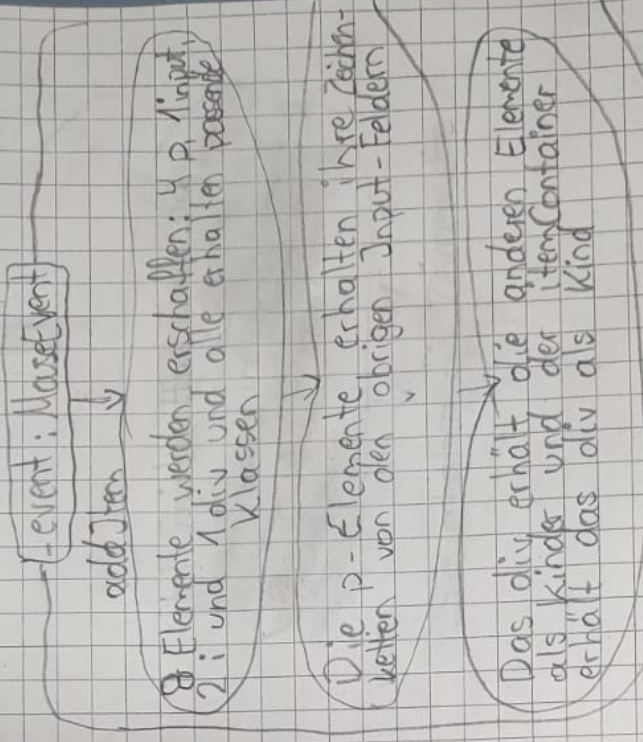 _event: MouseEvent
addItem
8 Elemente werden erschaffen: 4 p, 1 input,
2 i und 1 div und alle erhalten passende
Klassen
Die p-Elemente erhalten ihre Zeichen-
ketten von den übrigen Input-Feldern
Das div erhält die anderen Elemente
als Kinder und der itemContainer
erhält das div als Kind